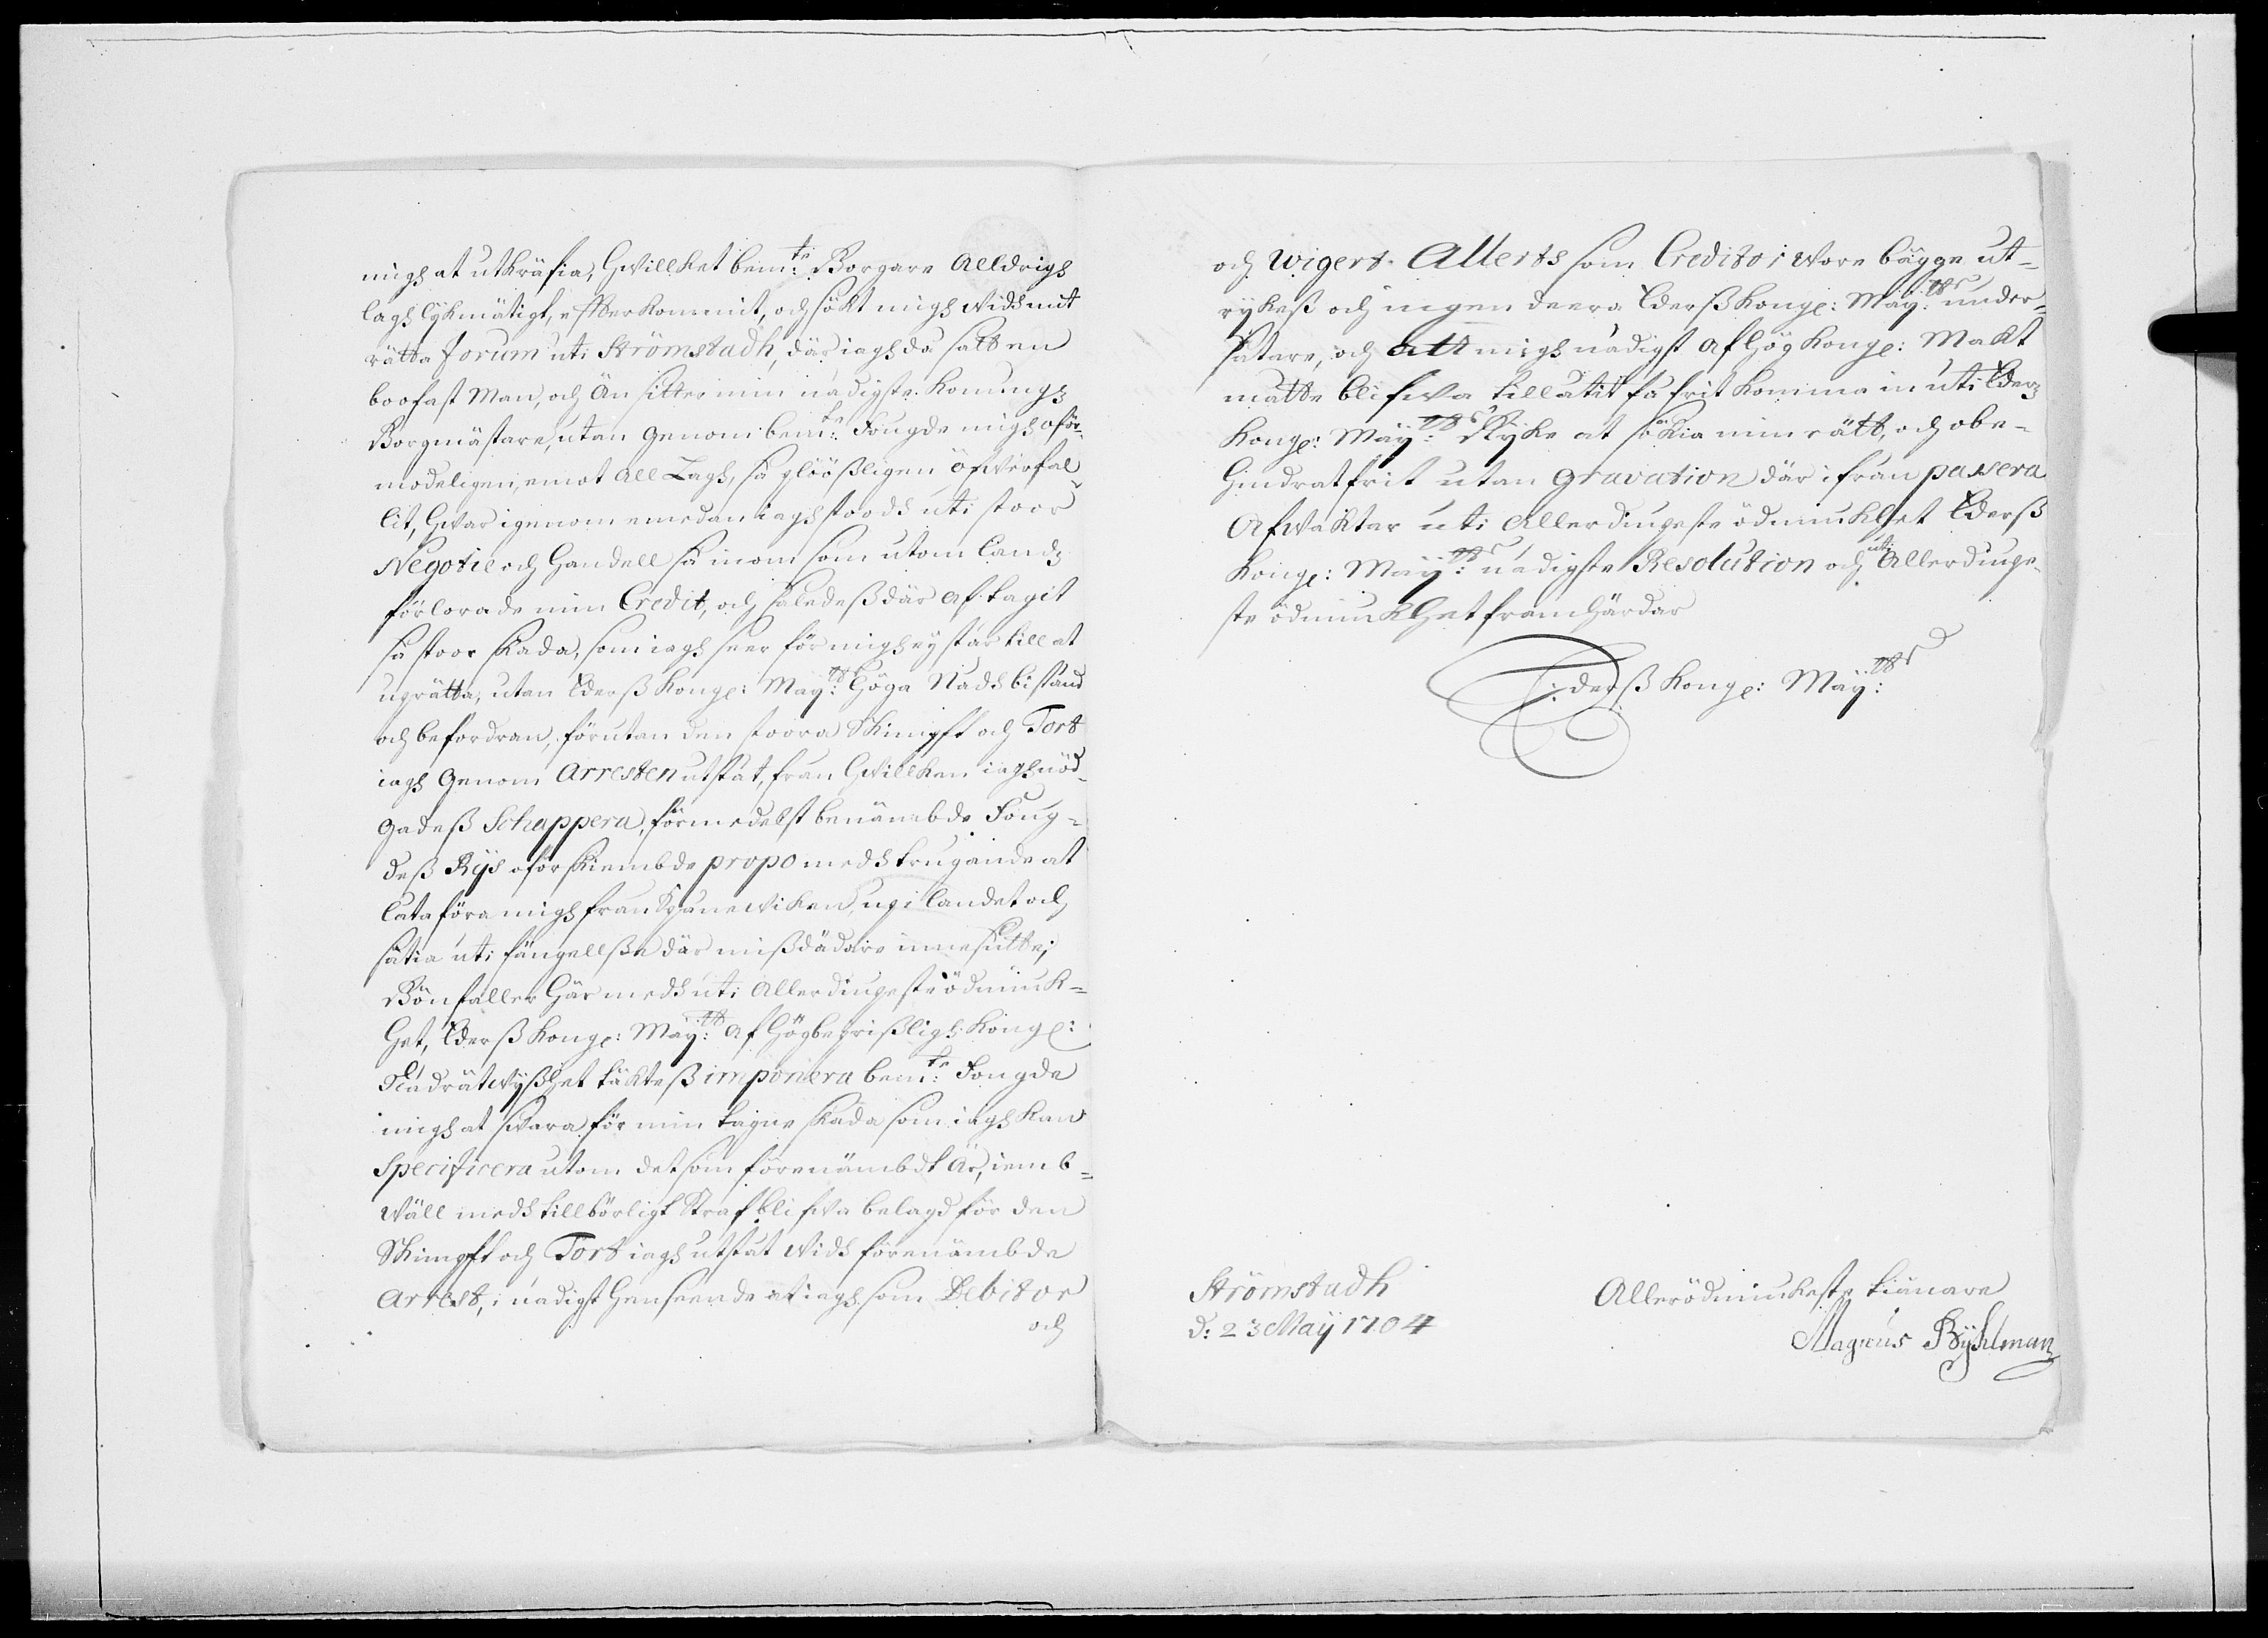 migh at utkräfia, Hwillket bem:te Borgare Alldrigh
lagh lijkmätigt, effterkommit, och sökt migh widh mitt
rätta forum uti Strömstadh, där iagh då satt en
boofast Man, och Än sitter min nådigste Konungz
Borgmästare, utan genom bem:te Fougde migh oför-
modeligen, emot All Lagh, så glöößligen öfwerfal-
lit, Hwar igenom emedan iagh stoodh uti stoor
Negotie och Handell så inom som utom landz
förlorade min Credit, och såledeß där af tagit
så stoor skada, som iagh seer för migh ey står till at
uprätta, utan Ederß Kongl: May:ttz Höga Nådh bistånd
och befordran, förutan den stoora Skimpft och Tort
iagh genom Arresten utstått, från Hwillken iagh nöd-
gadeß Schappera, förmedelst benämbde Foug-
deß Rijs oförskiembde propo medh trugande at
lata föra migh från  up i landet och
sätia uti fängellße där mißdådare inne sutte;
Bönfaller Här medh uti Allerdiupeste ödmiuk-
Het, Ederß Kongl: May:tt Af Högbeprißligh Kongl:
Nådrätwyßhet täkteß imponera bem:te Fougde
migh at swara för min tagne skada som iagh kan
Specificera utom det som förenämbdt Är, iemb-
wäll medh tillbörligt Straf blifwa belagd för den
Skimpft och Tort iagh utstått widh förenämbde
Arrest, i nådigst Henseende at iagh som Debitor
och
och Wigert Allerts som Creditor wore bägge ut-
rykeß och ingen deera Ederß Kongl: May:ttz under-
såtare, och att migh nådigst af Hög Kongl: Makt
måtte blifwa tillåtit få frit komma in uti Ederz
Kongl: May:ttz Ryke at sökia min rätt, och obe-
Hindrat frit utan gravation där ifrån passera
Afwaktar uti Allerdiupeste ödmiukhet Ederß
Kongl: May:ttz nådigste Resolution och uti Allerdiupe-
ste ödmiukhet framhärdar
Ederß Kongl: May:ttz
Strömstadh
d: 23 Maÿ 1704
Allerödmiukeste tiänare
Magnus Bÿhlman